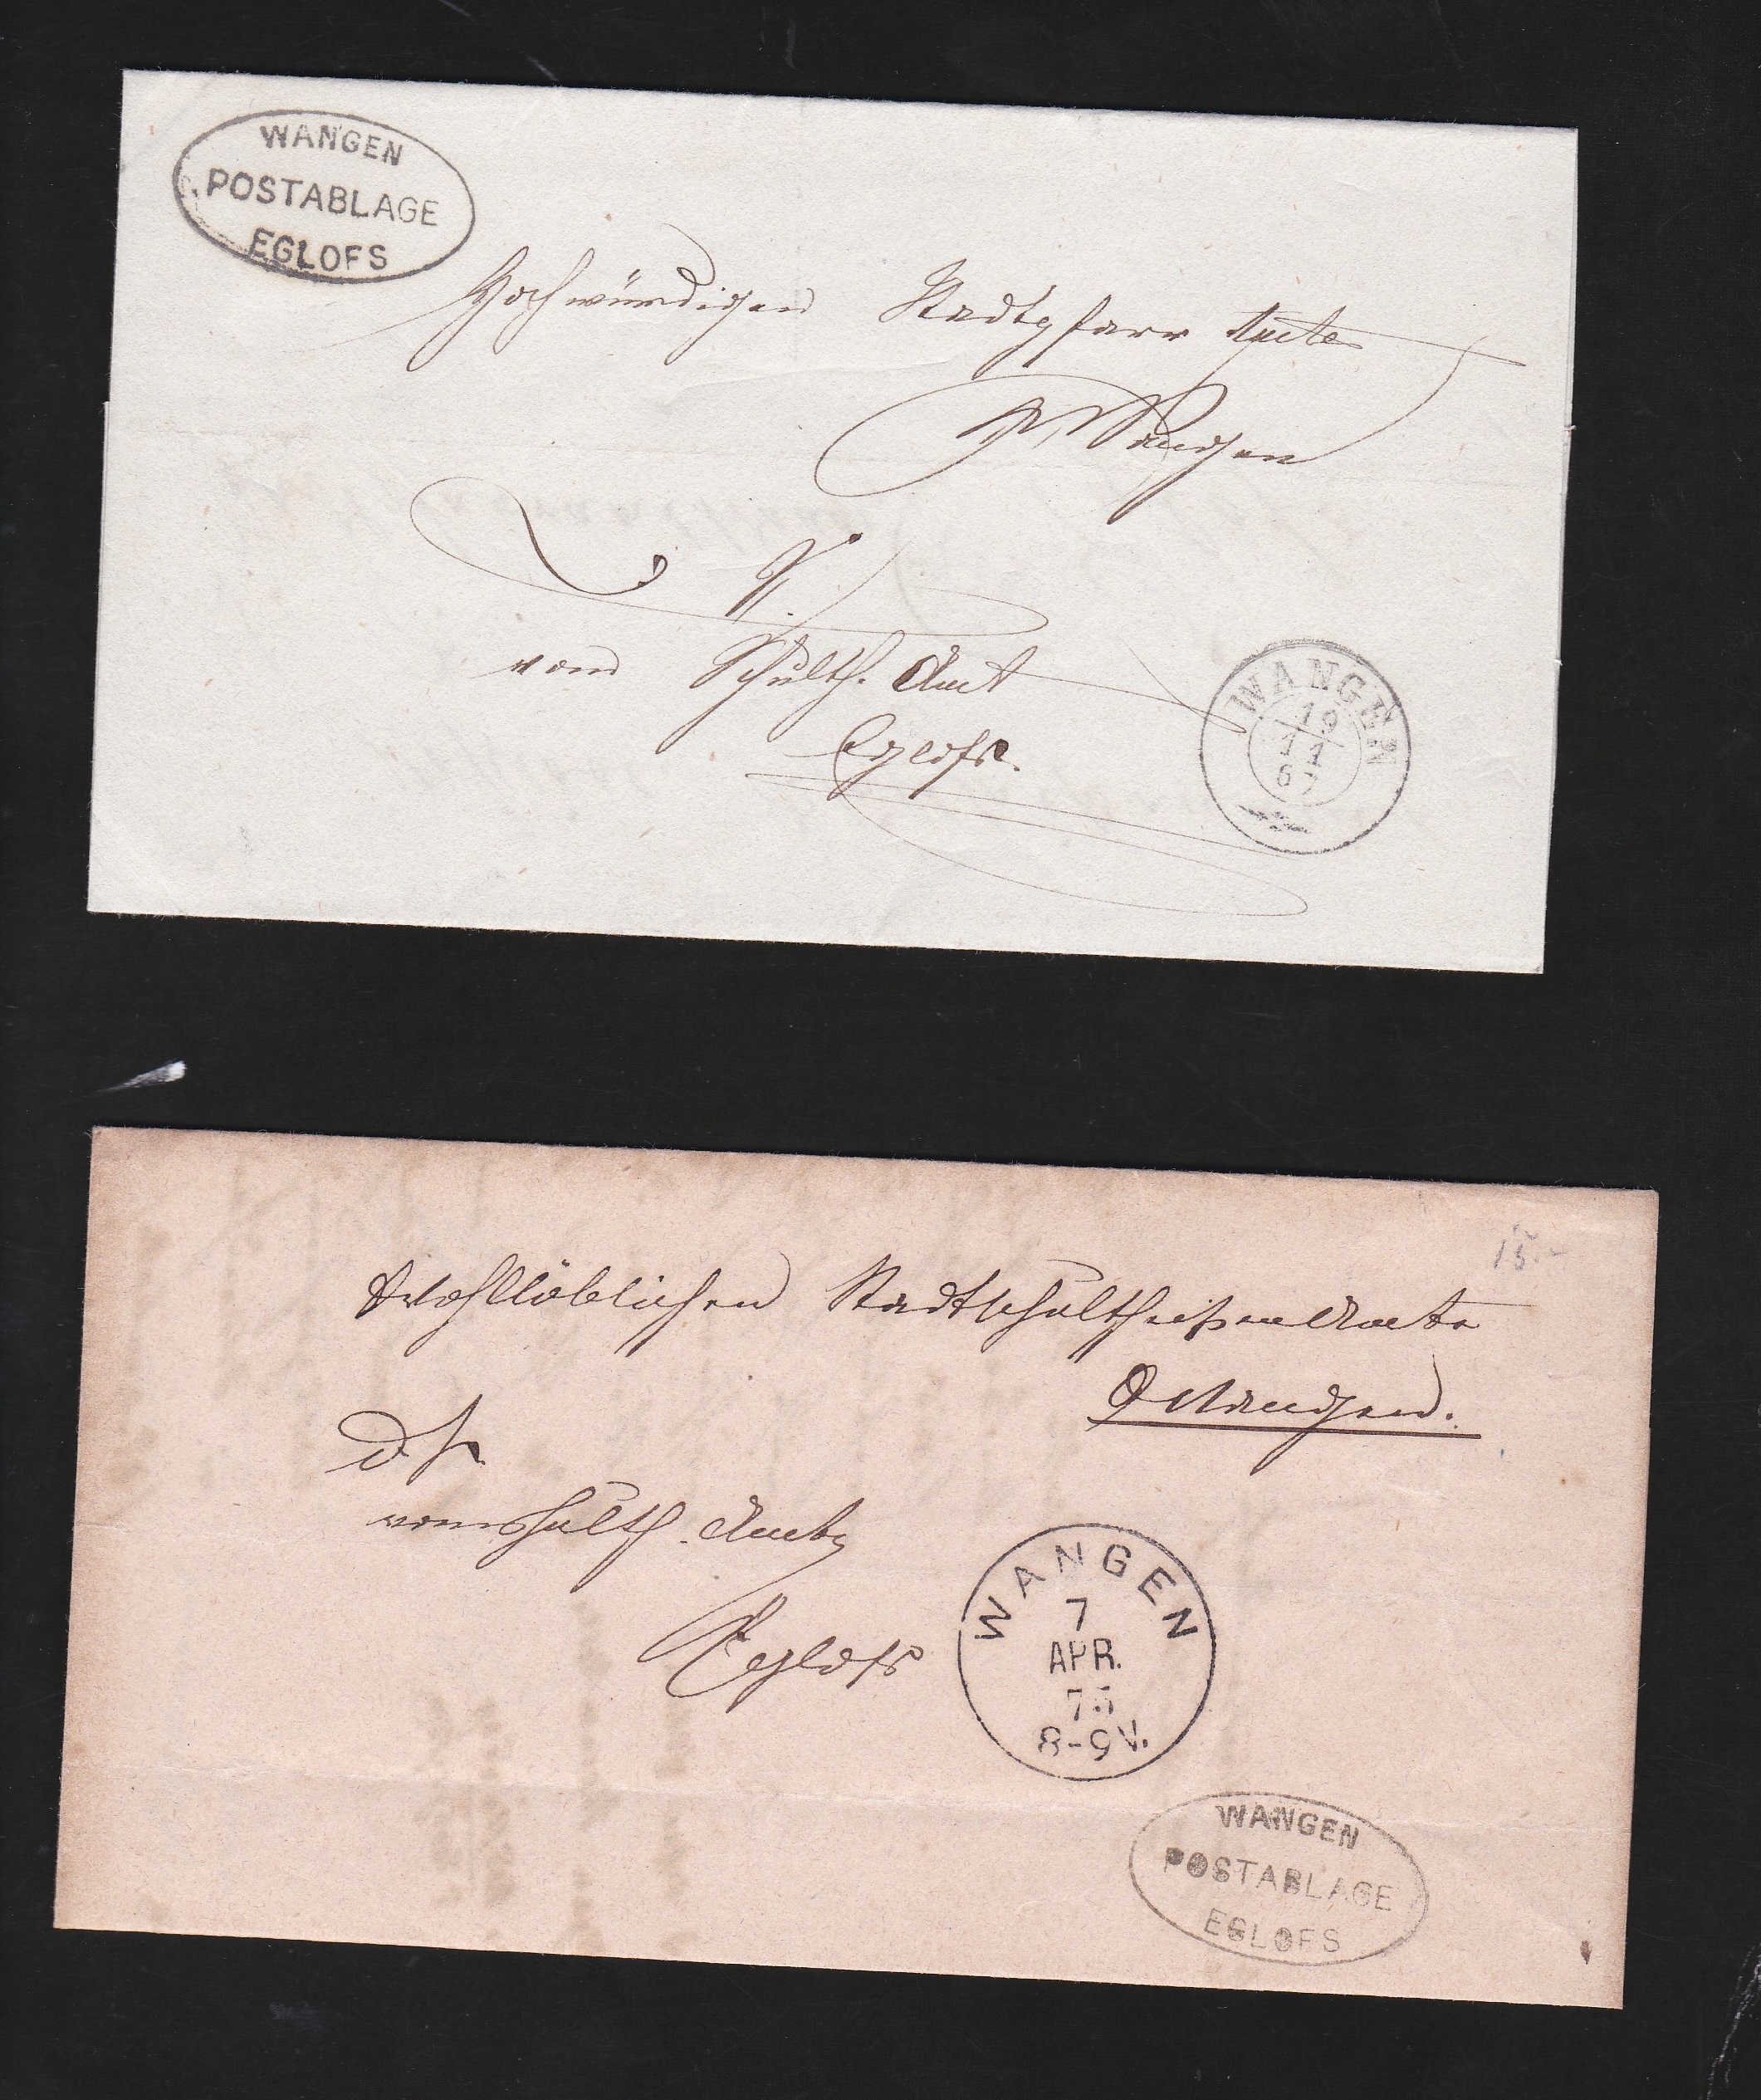 WANGEN
POSTABLAGE
EGLOFS
Hochwürdigen Stadtpfarr Amte
Wangen
vom Schulth. Amt
Eglofs.
WANGEN
19
11
67
15.-
Wohllöblichen Stadtschultheißen Amte
Wangen.
vom Schulth. Amte
Eglofs
WANGEN
7
APR.
75
8-9 V.
WANGEN
POSTABLAGE
EGLOFS